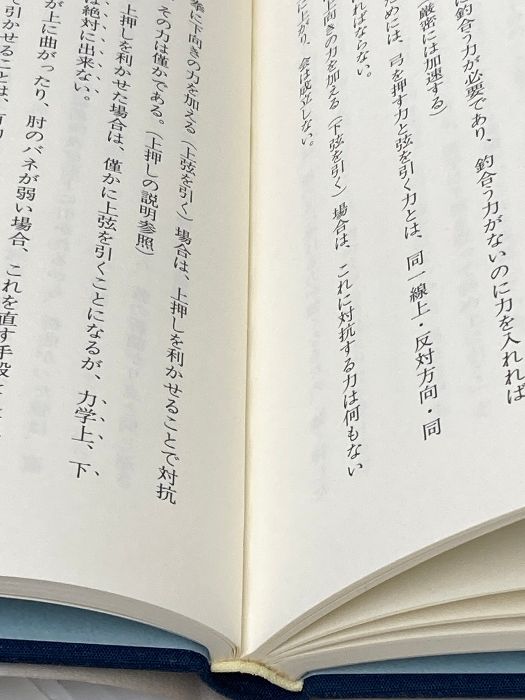 に釣合う力が必要であり、釣合う力がないのに力を入れれば
厳密には加速する）
ためには、弓を押す力と弦を引く力とは、同一線上・反対方向・同
ればならない。
上向きの力を加える（下弦を引く）場合は、これに対抗する力は何もない
に上がり、会は成立しない。
拳に下向きの力を加える（上弦を引く）場合は、上押しを利かせることで対抗
、その力は僅かである。（上押しの説明参照）
上押しを利かせた場合は、僅かに上弦を引くことになるが、力学上、下
は絶対に出来ない。
が上に曲がったり、肘のバネが弱い場合、これを直す手段
て引かせることは、